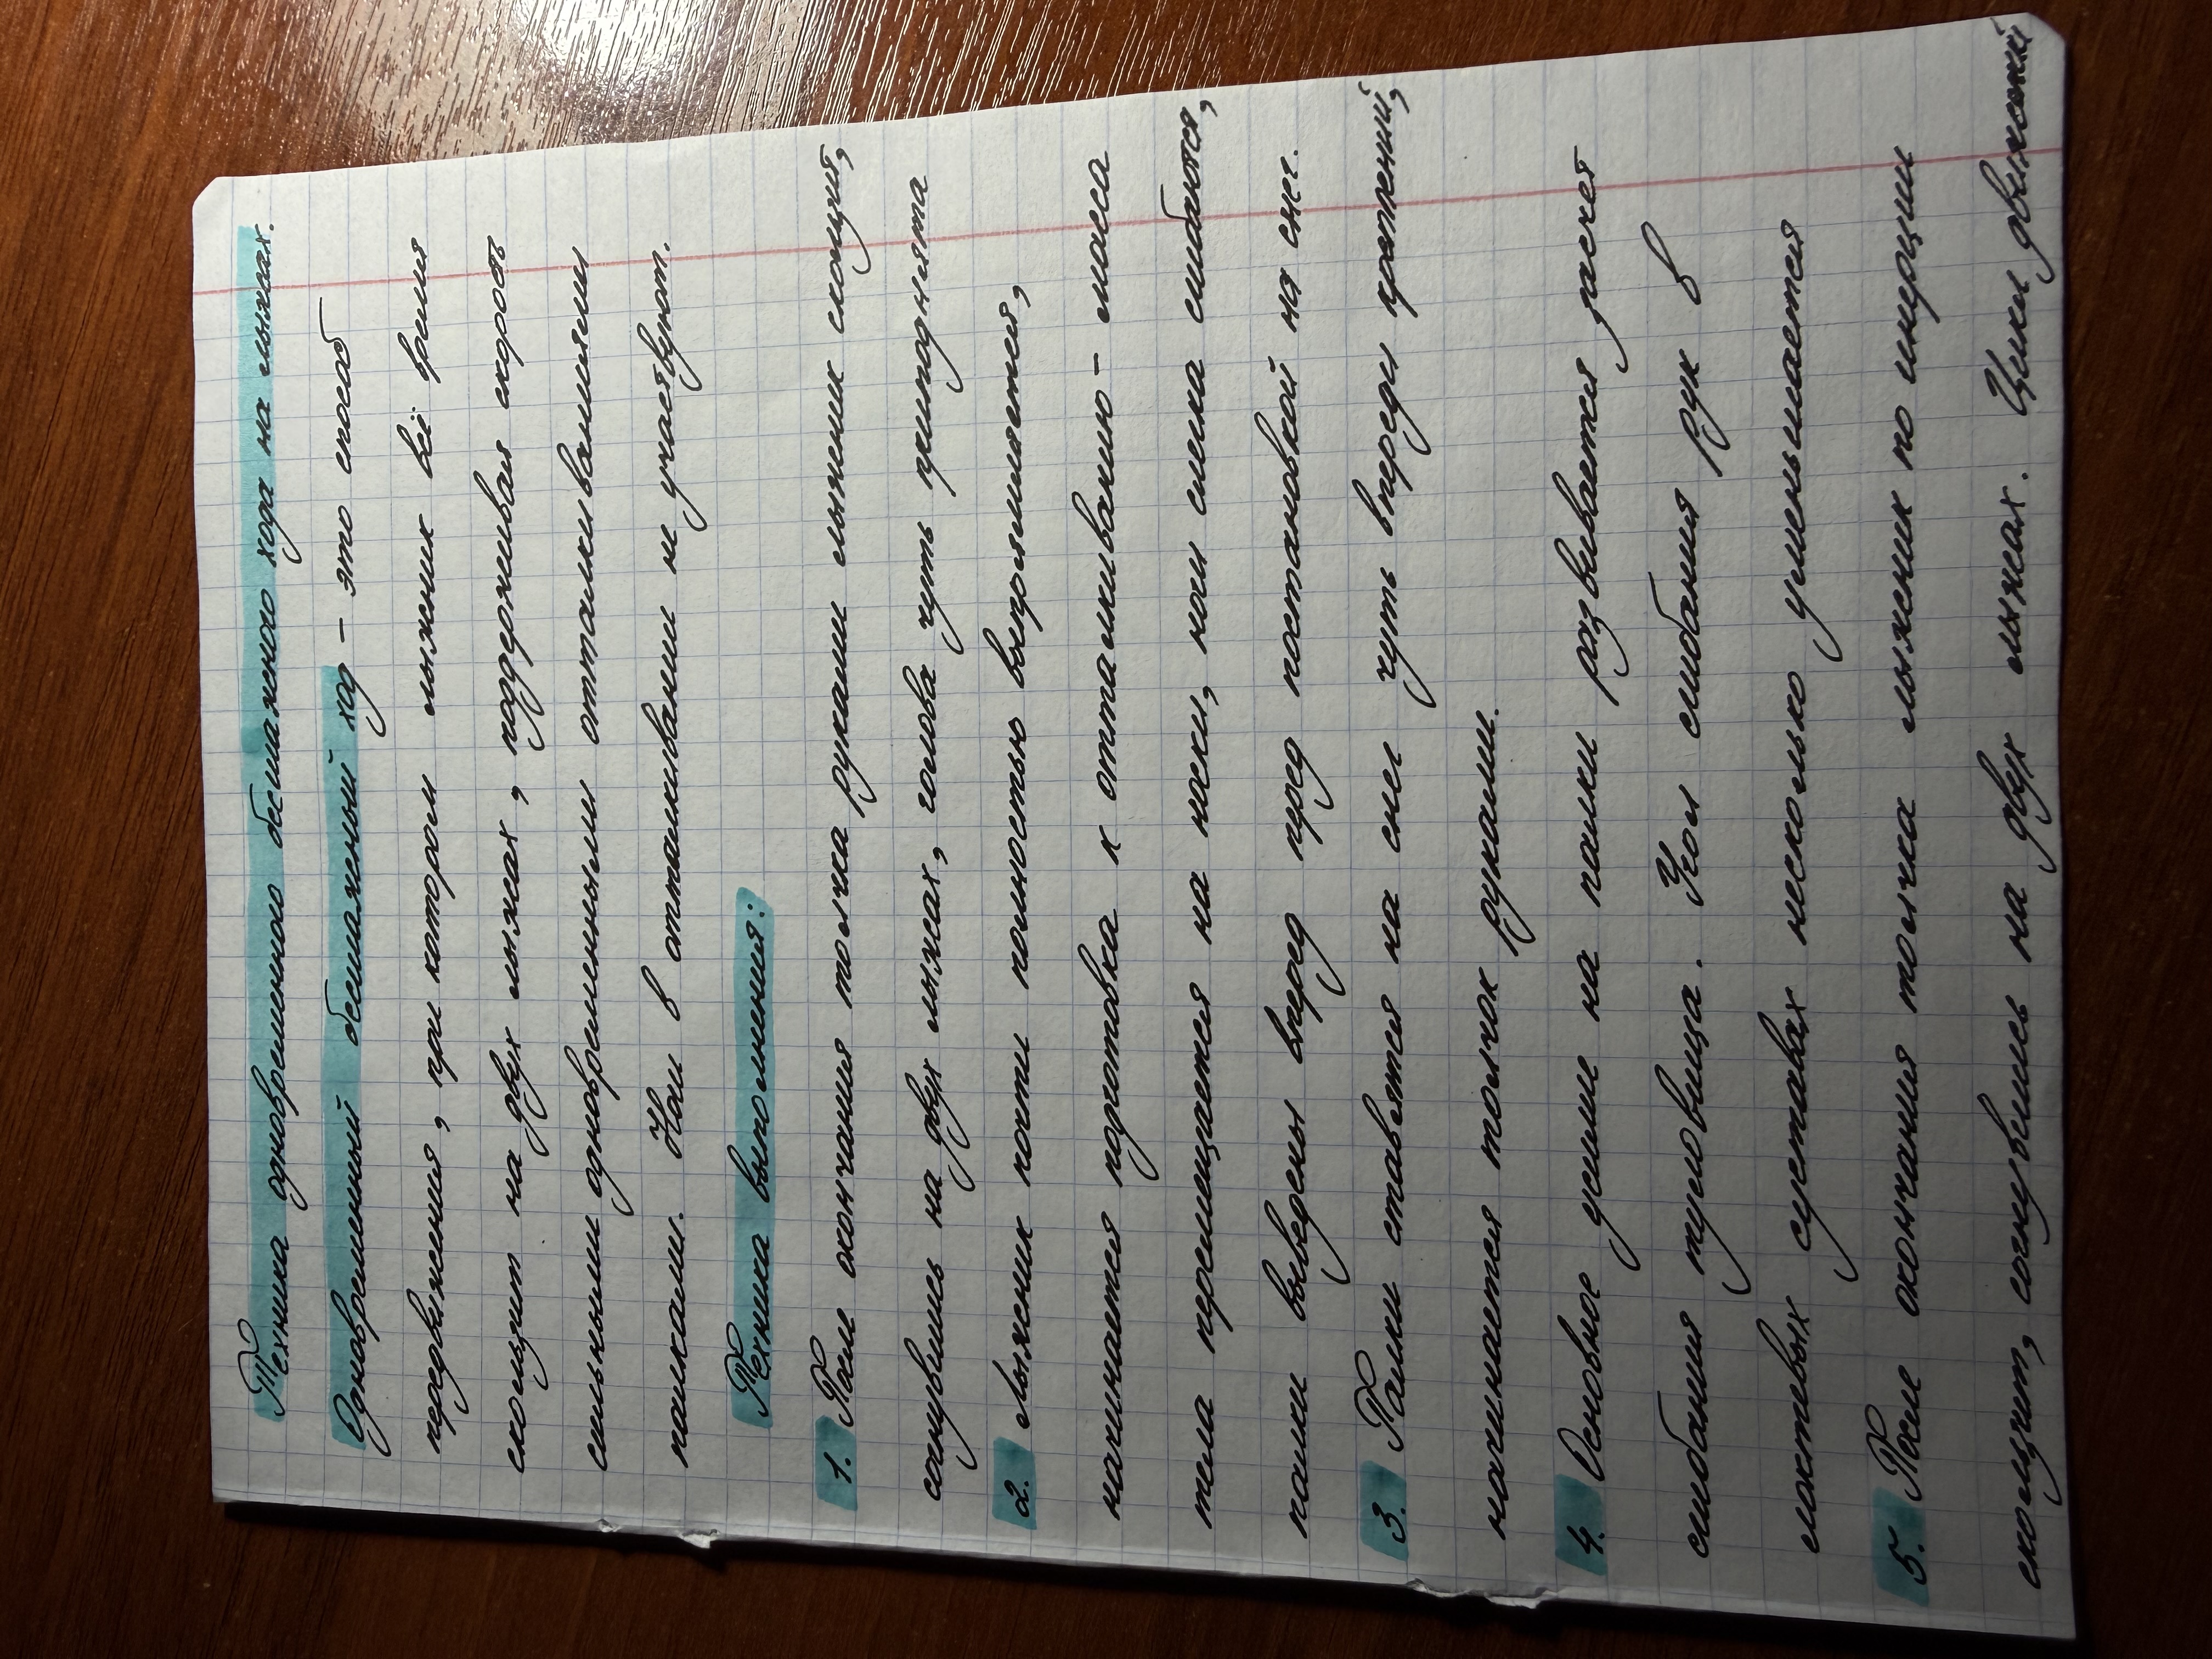 Техника одновременного бесшажного хода на лыжах.
Одновременный бесшажный ход – это способ
передвижения, при котором лыжник всё время
скользит на двух лыжах, поддерживая скорость
сильными одновременными отталкиваниями
палками. Ноги в отталкивании не участвуют.
Техника выполнения:
1. После окончания толчка руками лыжник скользит,
согнувшись на двух лыжах, голова чуть приподнята
2. Лыжник почти полностью выпрямляется,
начинается подготовка к отталкиванию – масса
тела перемещается на носки, ноги слегка сгибаются,
палки выведены вперед перед постановкой на снег.
3. Палки ставятся на снег чуть впереди креплений,
начинается толчок руками.
4. Основное усилие на палки развивается за счет
сгибания туловища. Угол сгибания рук в
локтевых суставах несколько уменьшается
5. После окончания толчка лыжник по инерции
скользит, согнувшись на двух лыжах. Цикл движений